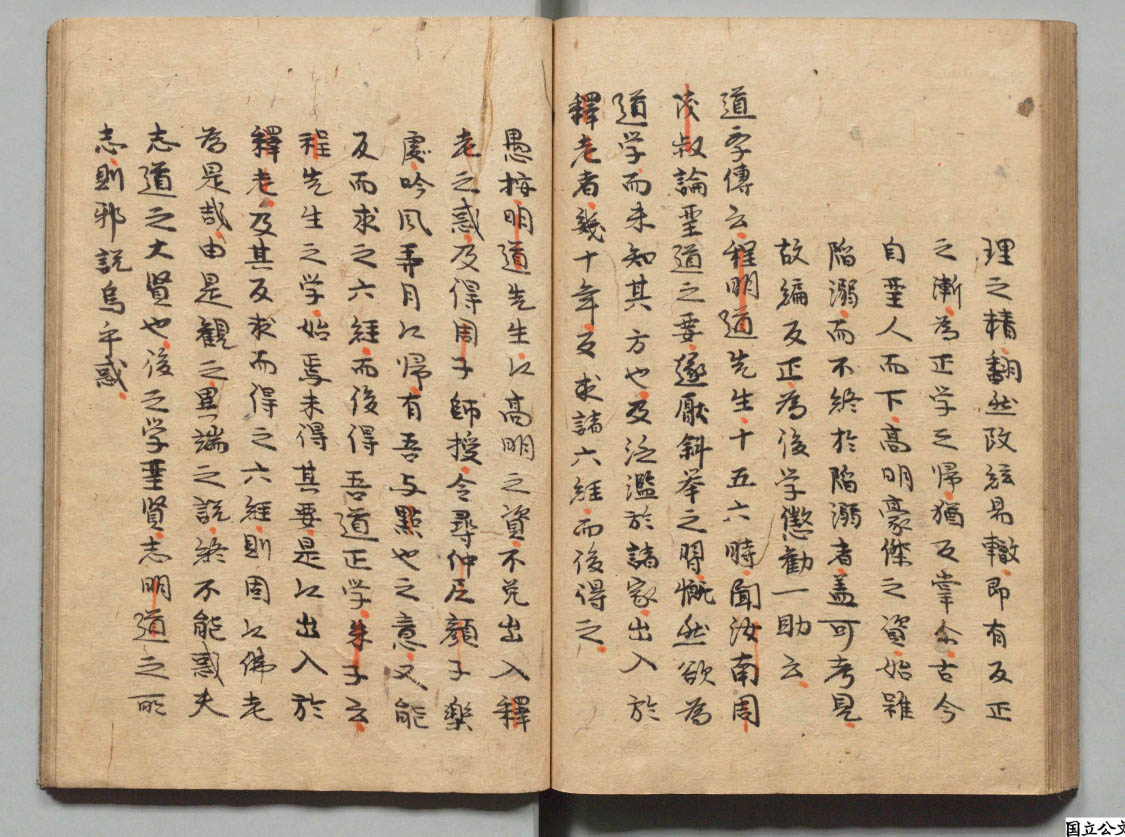 理之精翻然改絃易轍即有反正
之漸為正学之帰猶反掌尓古今
自聖人而下高明豪傑之資始雖
陥溺而不終於陥溺者盖可考見
故編反正為後学懲勸一助云
道学傳云程明道先生十五六時聞汝南周
茂叔論聖道之要遂厭斜举之習慨然欲為
道学而未知其方也及泛濫於諸家出入於
釋老者幾十年反求諸六経而後得之
愚按明道先生以高明之資不免出入釋
老之惑及得周子師授令尋仲尼顔子樂
處吟风弄月以帰有吾与點也之意又能
反而求之六経而後得吾道正学朱子云
程先生之学始焉未得其要是以出入於
釋老及其反求而得之六経則固以佛老
為是哉由是觀之異端之説終不能惑夫
志道之大賢也後之学聖賢志明道之所
志則邪説烏乎惑
国立公文